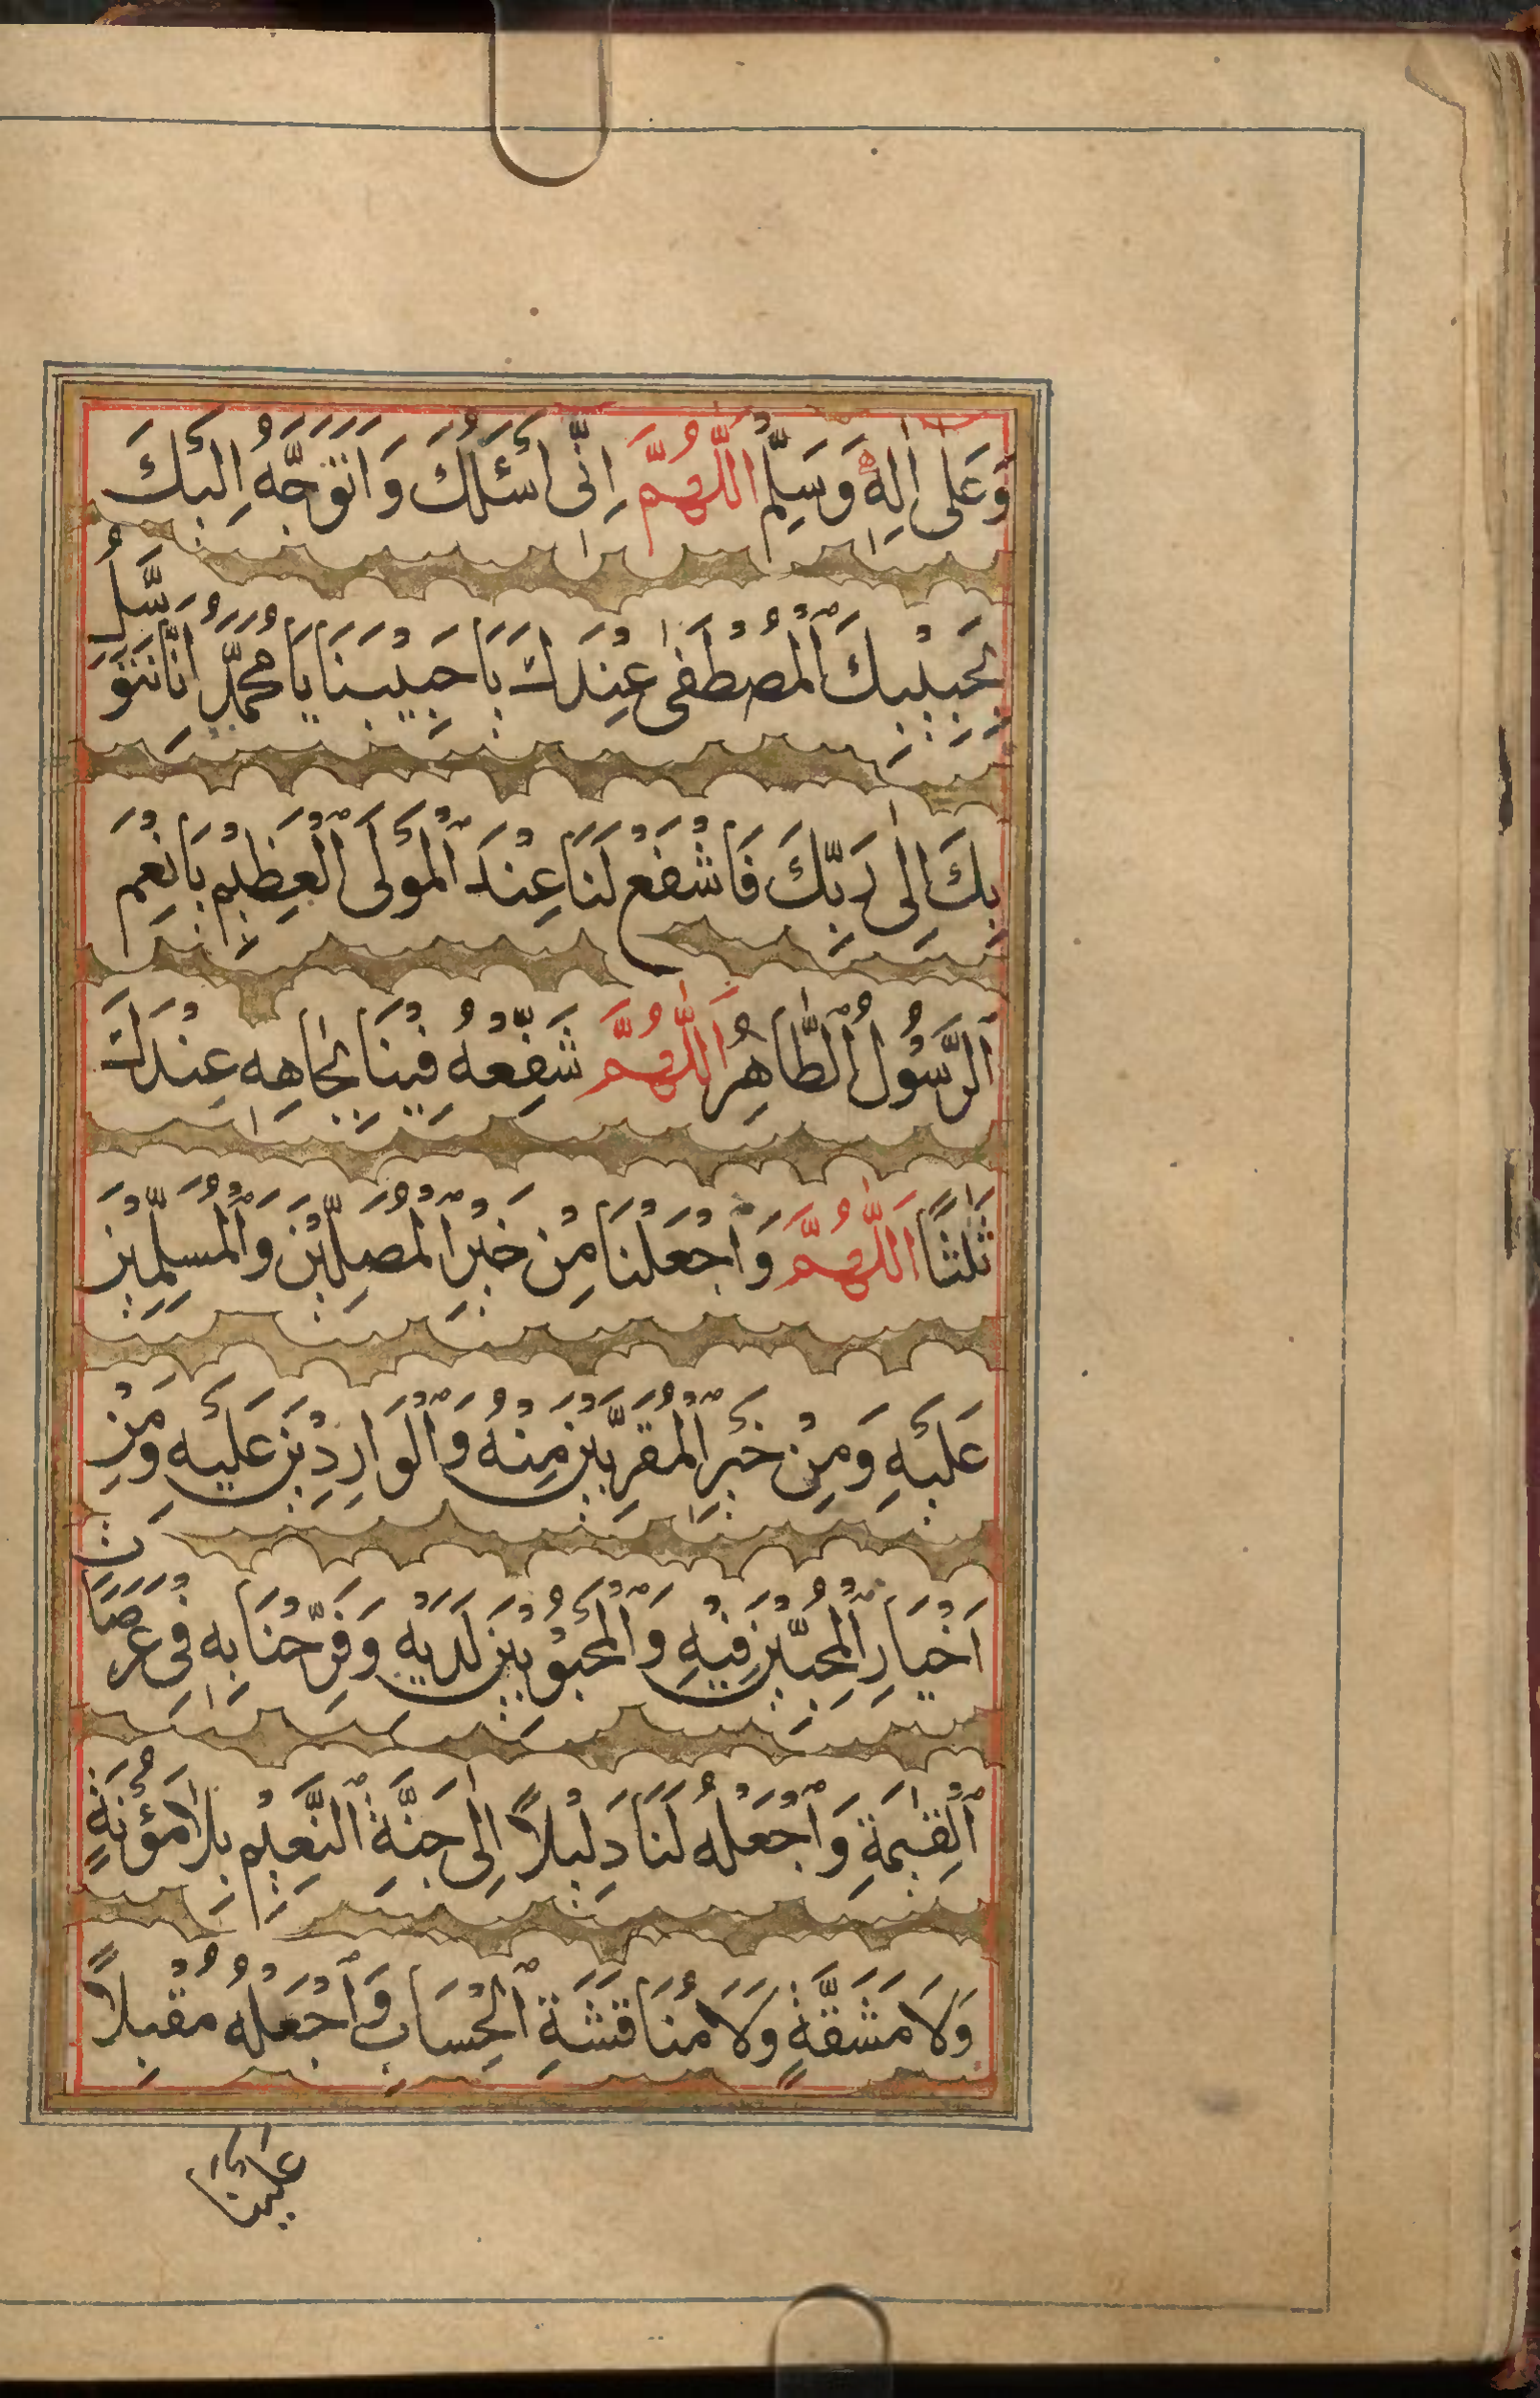 وَعَلٰى اٰلِهٖ وَسَلِّمْ اَللّٰهُمَّ اِنِّى اَسْئَلُكَ وَاَتَوَجَّهُ اِلَيْكَ
بِحَبِيْبِكَ ٱلْمُصْطَفٰى عِنْدَكَ يَاحَبِيْبَنَا يَا مُحَمَّدُ اِنَّا نَتَوَسَّلُ
بِكَ اِلٰى رَبِّكَ فَاشْفَعْ لَنَا عِنْدَ ٱلْمَوْلَى ٱلْعَظِيْمِ يَانِعْمَ
ٱلرَّسُوْلُ ٱلطَّاهِرُ اَللّٰهُمَّ شَفِّعْهُ فِيْنَا بِجَاهِهٖ عِنْدَكَ
ثَلٰثًا اَللّٰهُمَّ وَٱجْعَلْنَا مِنْ خَيْرِ ٱلْمُصَلِّيْنَ وَٱلْمُسَلِّمِيْنَ
عَلَيْهِ وَمِنْ خَيْرِ ٱلْمُقَرَّبِيْنَ مِنْهُ وَٱلْوَارِدِيْنَ عَلَيْهِ وَمِنْ
اَخْيَارِ ٱلْمُحِبِّيْنَ فِيْهِ وَٱلْمَحْبُوْبِيْنَ لَدَيْهِ وَفَرِّحْنَا بِهٖ فِى عَرَصَاتِ
ٱلْقِيٰمَةِ وَٱجْعَلْهُ لَنَا دَلِيْلاً اِلٰى جَنَّةِ ٱلنَّعِيْمِ بِلَا مَؤُنَةٍ
وَلَا مَشَقَّةٍ وَلَا مُنَاقَشَةِ ٱلْحِسَابِ وَٱجْعَلْهُ مُقْبِلاً
عَلَيْنَا